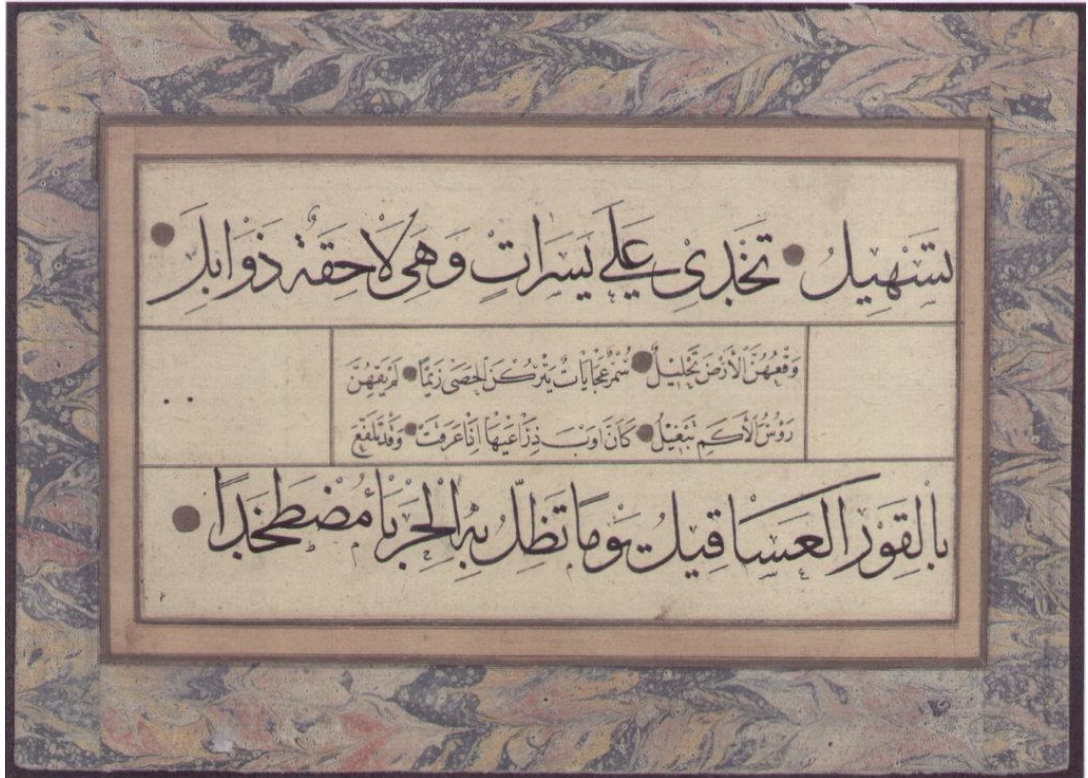 تَسْهِيلُ تَخْدِي عَلَى يَسَرَاتٍ وَهْيَ لَاحِقَةٌ ذَوَابِلُ
وَقْعُهُنَّ الْأَرْضَ تَحْلِيلُ سُمْرُ عُجَايَاتٌ يَتْرُكْنَ الْحَصَى زِيَمًا لَمْ يَقِهِنَّ
رَوْسُ الْأُكُمِ تَبْغِيلُ كَانَ اَوْبَ ذِرَاعَيْهَا اِذَا عَرِقَتْ وَقَدْ تَلَفَّعَ
بِالْقُورِ الْعَسَاقِيلُ يَوْمًا تَظَلُّ بِهِ الْحِرْبَاءُ مُضْطَخِدًا